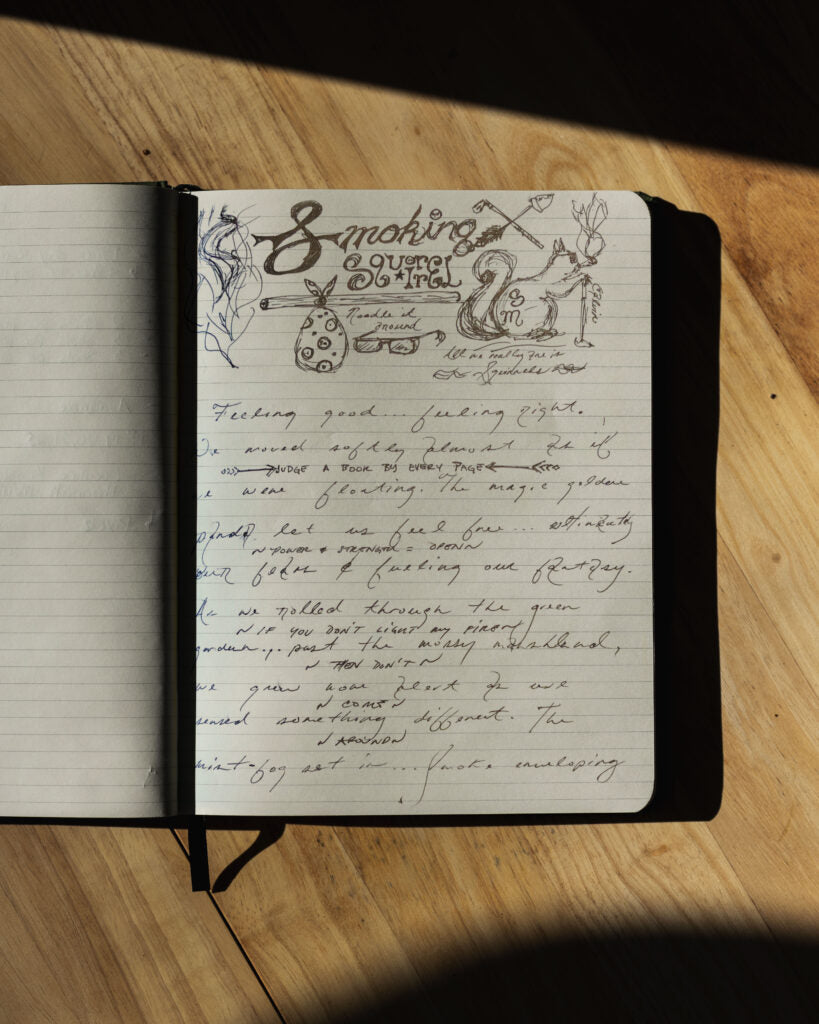 Smoking
Squerel
Noodle'd
around
SM
All we really are is
Squirrels
Feeling good... feeling right.
We moved softly almost as if
JUDGE A BOOK BY EVERY PAGE
we were floating. The magic golden
let us feel free...
~ POWER & STRENGTH = OPEN ~
our fears & fueling our fantasy.
As we rolled through the green
~ IF YOU DON'T LIGHT MY FIRE ~
garden... past the mossy marshland,
~ THEN DON'T ~
we grew more alert as we
~ COME ~
sensed something different. The
~ AROUND ~
mist-fog set in... smoke enveloping